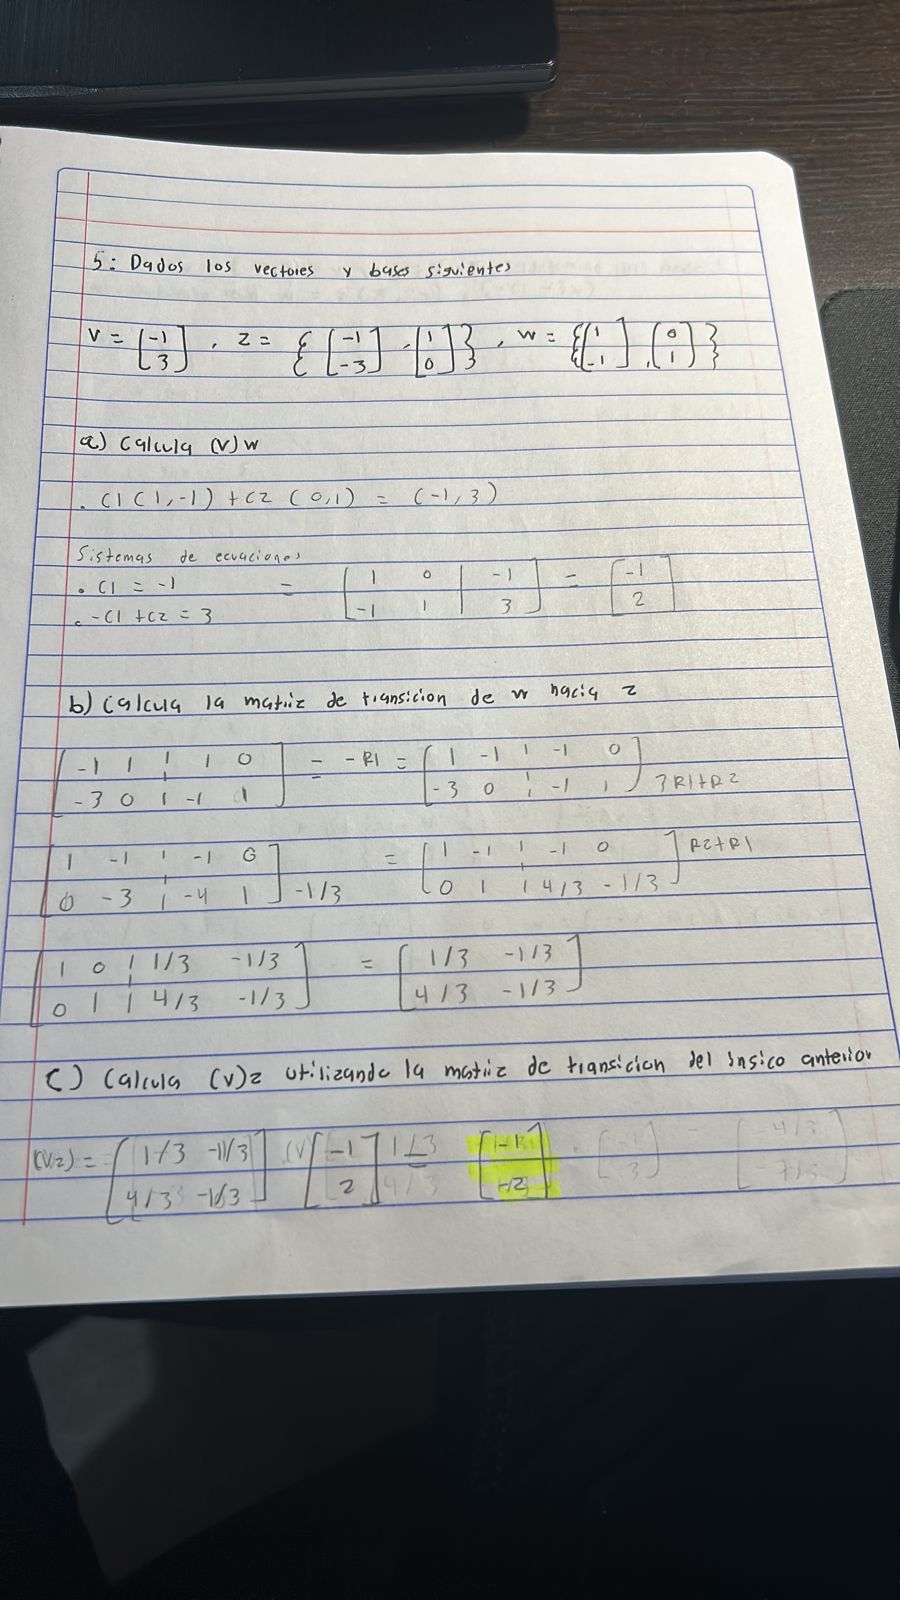 5: Dados los vectores y bases siguientes
V = [-1 3] , Z = { [-1 -3] , [1 0] } , W = { [1 -1] , [0 1] }
a) Calcula (V)w
. C1 (1,-1) + C2 (0,1) = (-1,3)
Sistemas de ecuaciones
. C1 = -1 = [ 1 0 | -1 ] = [ -1 ]
. -C1 + C2 = 3 [ -1 1 | 3 ] [ 2 ]
b) Calcula la matriz de transicion de w hacia z
[ -1 1 ¦ 1 0 ] = -R1 = [ 1 -1 ¦ -1 0 ]
[ -3 0 ¦ -1 1 ] [ -3 0 ¦ -1 1 ] 3R1+R2
[ 1 -1 ¦ -1 0 ] = [ 1 -1 ¦ -1 0 ] R2+R1
[ 0 -3 ¦ -4 1 ] -1/3 [ 0 1 ¦ 4/3 -1/3 ]
[ 1 0 ¦ 1/3 -1/3 ] = [ 1/3 -1/3 ]
[ 0 1 ¦ 4/3 -1/3 ] [ 4/3 -1/3 ]
C) Calcula (V)z utilizando la matriz de transicion del insico anterior
(Vz) = [ 1/3 -1/3 ] [ -1 ]
[ 4/3 -1/3 ] [ 2 ] [ -2 ]